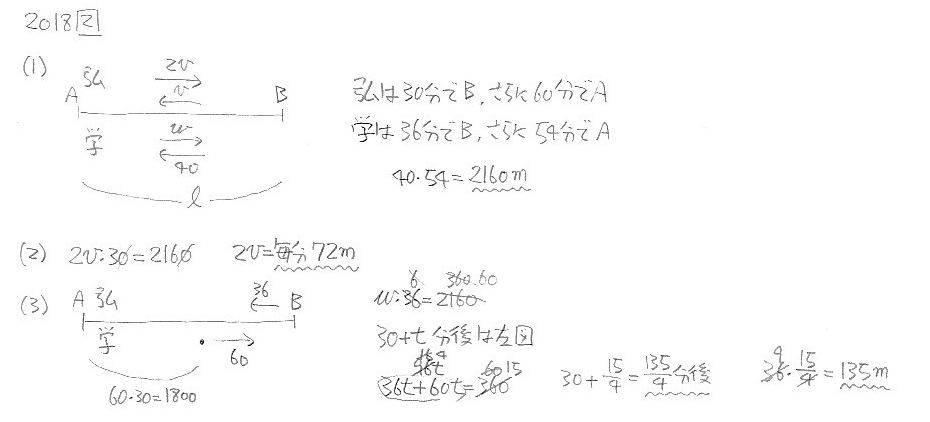 2018 2
(1)
A 弘 2v v B
学 w 40
l
弘は30分でB,さらに60分でA
学は36分でB,さらに54分でA
40・54=2160m
(2) 2v・30=2160 2v=毎分72m
(3) A 弘 36 B
学 60
60・30=1800
6 360・60
w・36=2160
30+t分後は左図
96t 60 15
36t+60t=360
30+15/4=135/4分後
9
36・15/4=135m